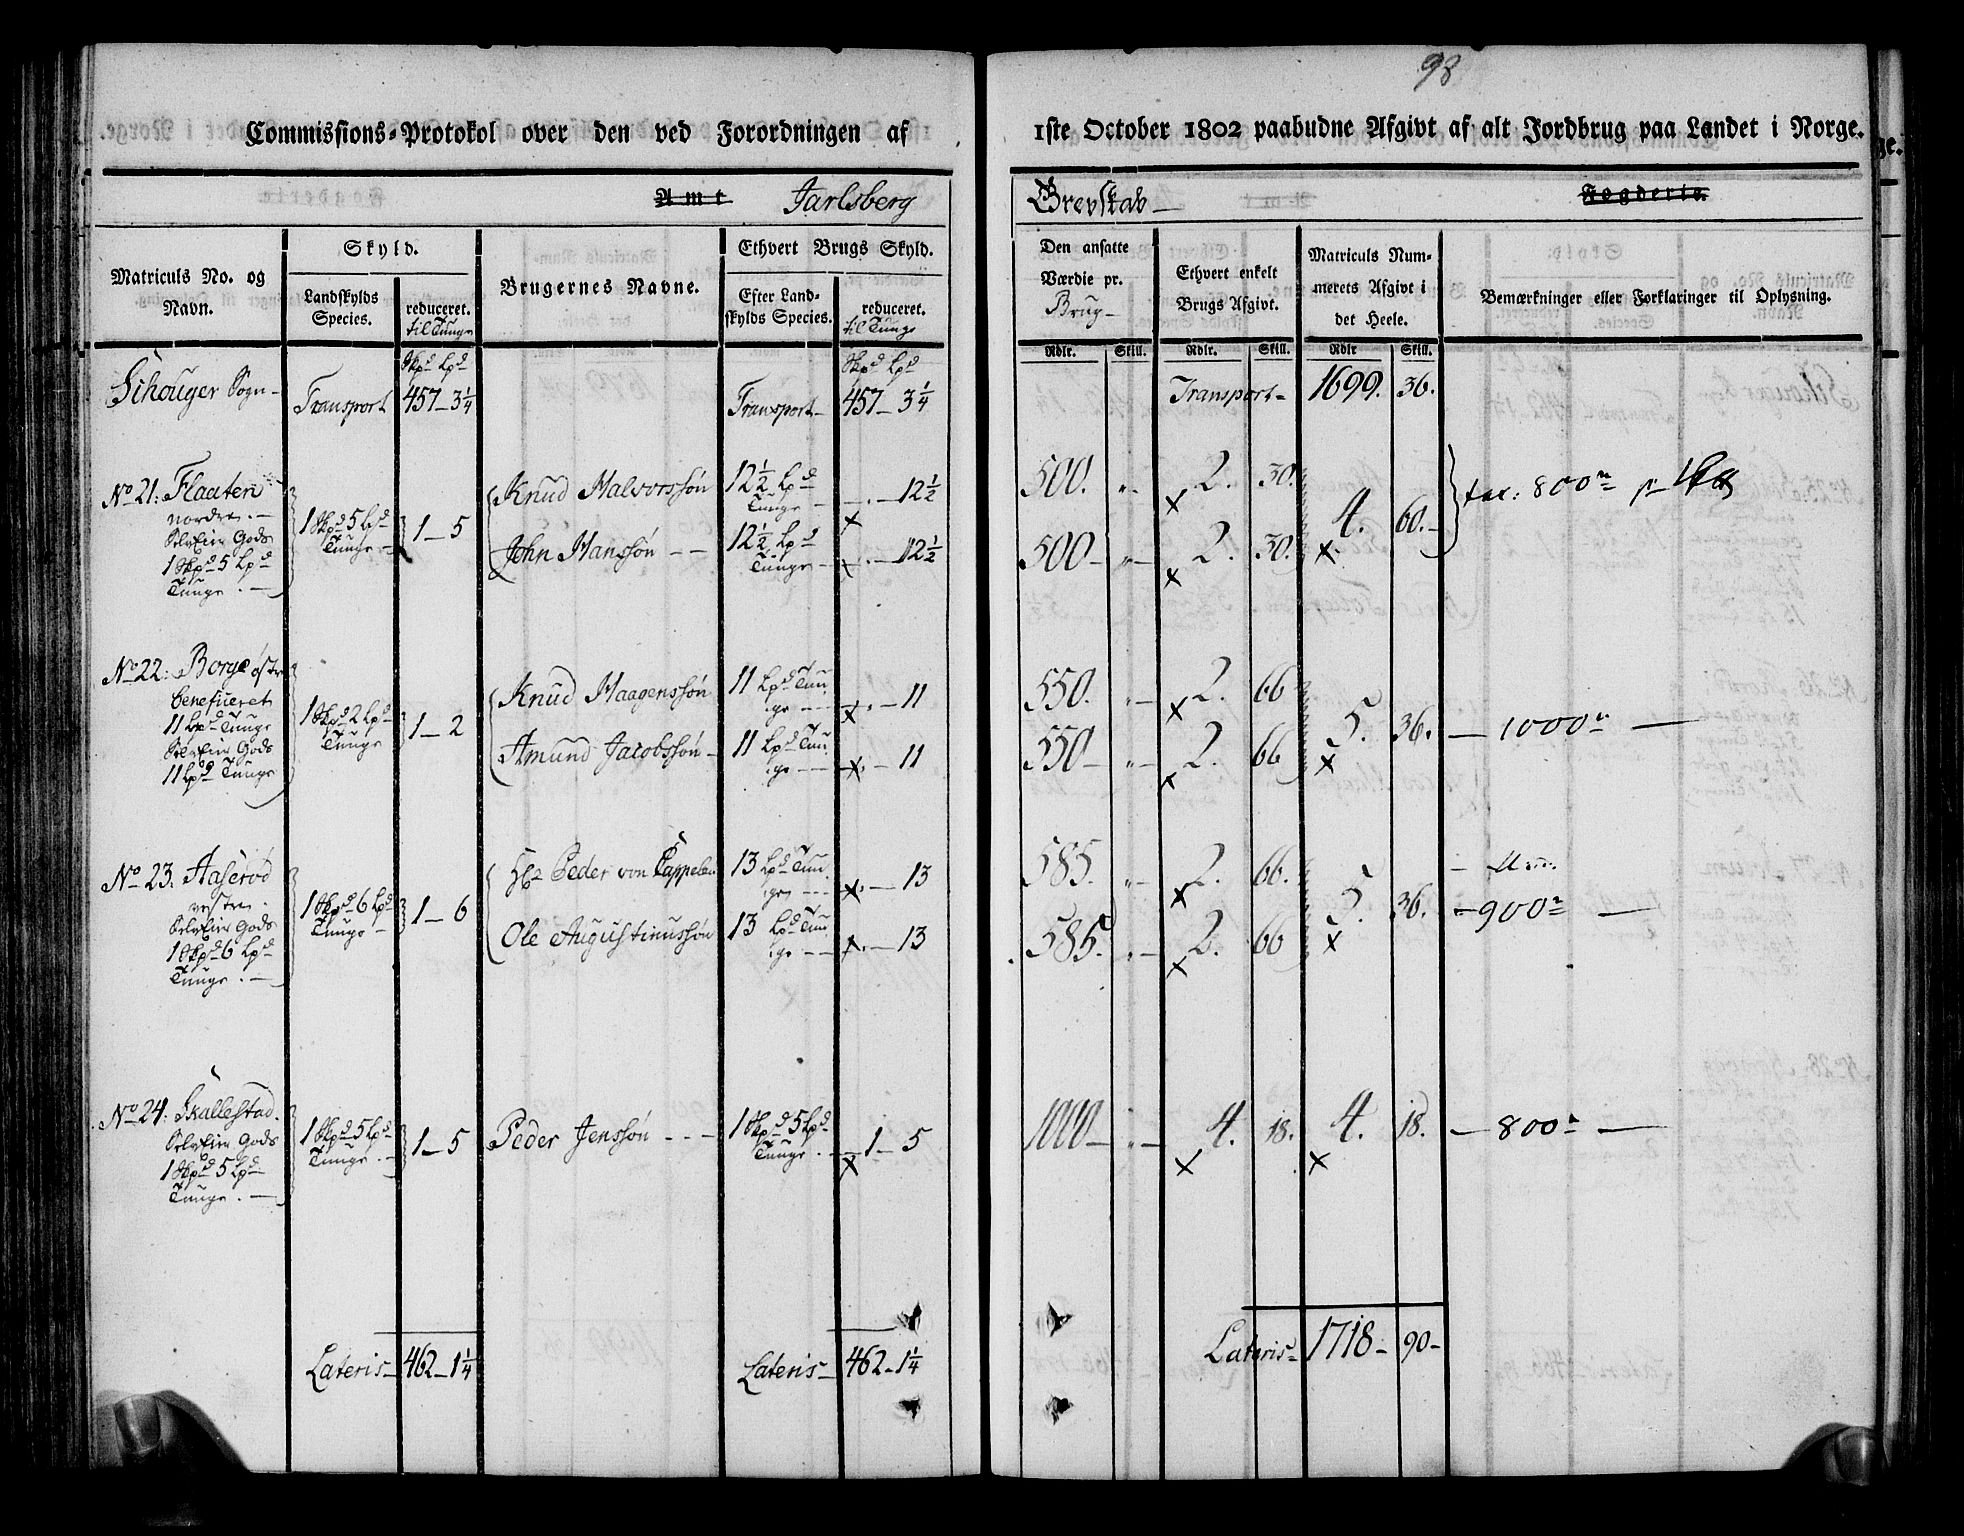 98
Commissions-Protokol over den ved Forordningen af 1ste October 1802 paabudne Afgivt af alt Jordbrug paa Landet i Norge.
Amt Jarlsberg Grevskab Fogderie.
Matriculs No. og Navn.
Skyld.
Landskylds Species.
reduceret. til Tunge
Brugernes Navne.
Ethvert Brugs Skyld.
Efter Landskylds Species.
reduceret. til Tunge
Den ansatte Værdie pr. Brug
Ethvert enkelt Brugs Afgivt.
Matriculs Nummerets Afgivt i det Heele.
Bemærkninger eller Forklaringer til Oplysning.
Skpd Lpd Skpd Lpd Rdlr. Skill. Rdlr. Skill. Rdlr Skill.
Schouger Sogn Transport 457 - 3 1/4 Transport 457 - 3 1/4 Transport 1699. 36.
No 21: Flaaten
nordre
SelvEier Gods
1 Skpd 5 Lpd
Tunge
1 Skpd 5 Lpd Tunge 1 - 5
Knud Halvorssøn 12 1/2 Lpd Tunge 12 1/2 500. 2. 30.
John Hanssøn 12 1/2 Lpd Tunge 12 1/2 500 2. 30.
4. 60. 800
No 22: Borge østre
beneficeret
11 Lpd Tunge
SelvEier Gods
11 Lpd Tunge
1 Skpd 2 Lpd Tunge 1 - 2
Knud Haagenssøn 11 Lpd Tunge 11 550. 2. 66
Amund Jacobssøn 11 Lpd Tunge 11 550 2. 66
5. 36. 1000
No 23. Aaserød
vestre
SelvEier Gods
1 Skpd 6 Lpd
Tunge
1 Skpd 6 Lpd Tunge 1 - 6
Hr Peder von Cappelen 13 Lpd Tunge 13 585. 2. 66.
Ole Augustinussøn 13 Lpd Tunge 13 585. 2. 66
5. 36. 900
No 24: Skallestad
SelvEier Gods
1 Skpd 5 Lpd
Tunge
1 Skpd 5 Lpd Tunge 1 - 5
Peder Jenssøn 1 Skpd 5 Lpd Tunge 1 - 5 1000 4. 18. 4. 18. 800
Lateris 462 - 1 1/4 Lateris 462 - 1 1/4 Lateris 1718 - 90